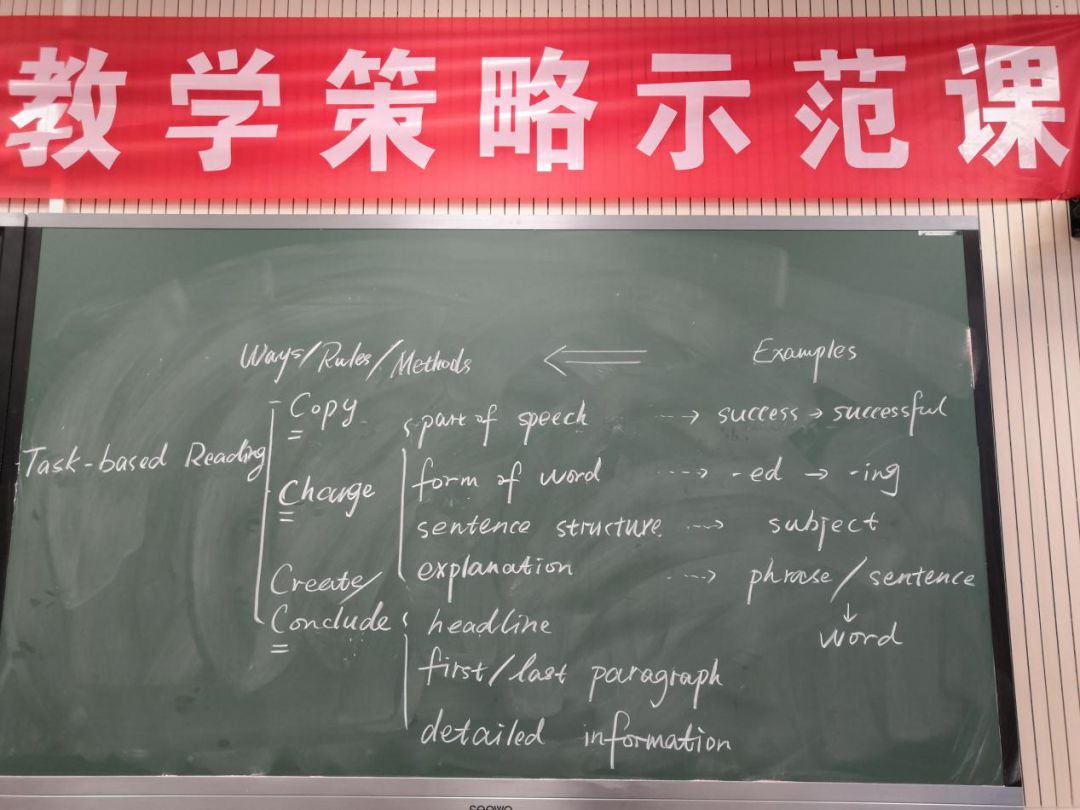 教学策略示范课
Ways/Rules/Methods ⇐ Examples
Copy
part of speech ⇢ success → successful
Task-based Reading
form of word ⇢ -ed → -ing
Change
sentence structure ⇢ subject
explanation ⇢ phrase / sentence
Create/
↓
Conclude
headline
word
first/last paragraph
detailed information
seewo